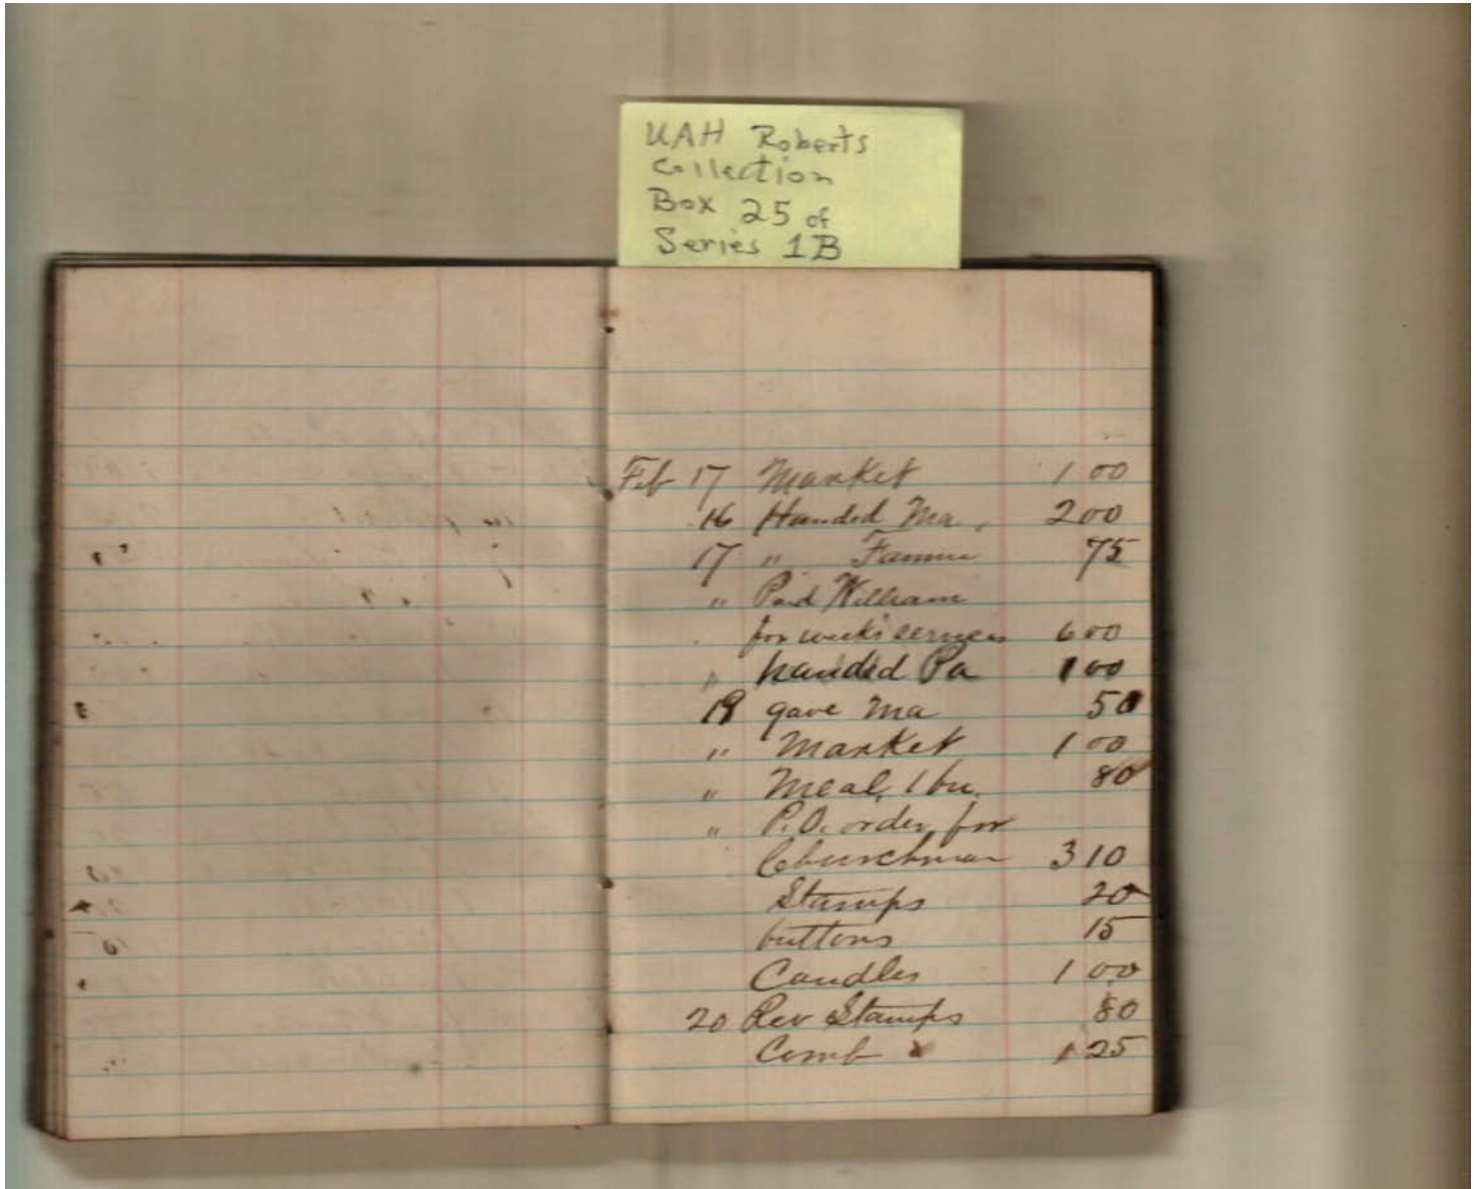 UAH Roberts
Collection
Box 25 of
Series 1B
Feb 17 Market 1 00
16 Handed Ma, 2 00
17 " Fannie 75
" Paid William
for week's services 6 00
" handed Pa 1 00
19 gave Ma 50
" Market 1 00
" Meal, 1 bu. 80
" P.O. order for
Churchman 3 10
Stamps 20
buttons 15
Candles 1 00
20 Rev Stamps 80
Comb 1 25